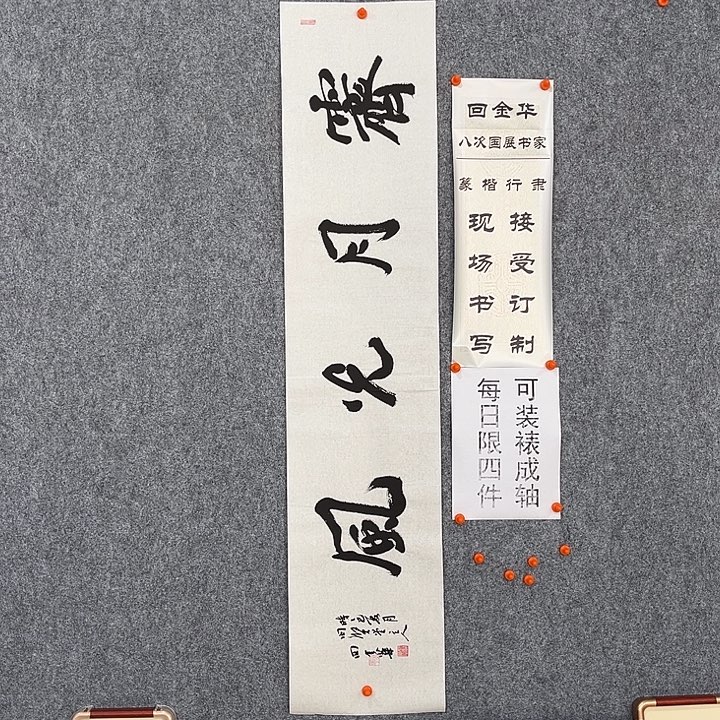 霽月光風
回金華
回金华
八次国展书家
篆楷行隶
接受订制
现场书写
可装裱成轴
每日限四件